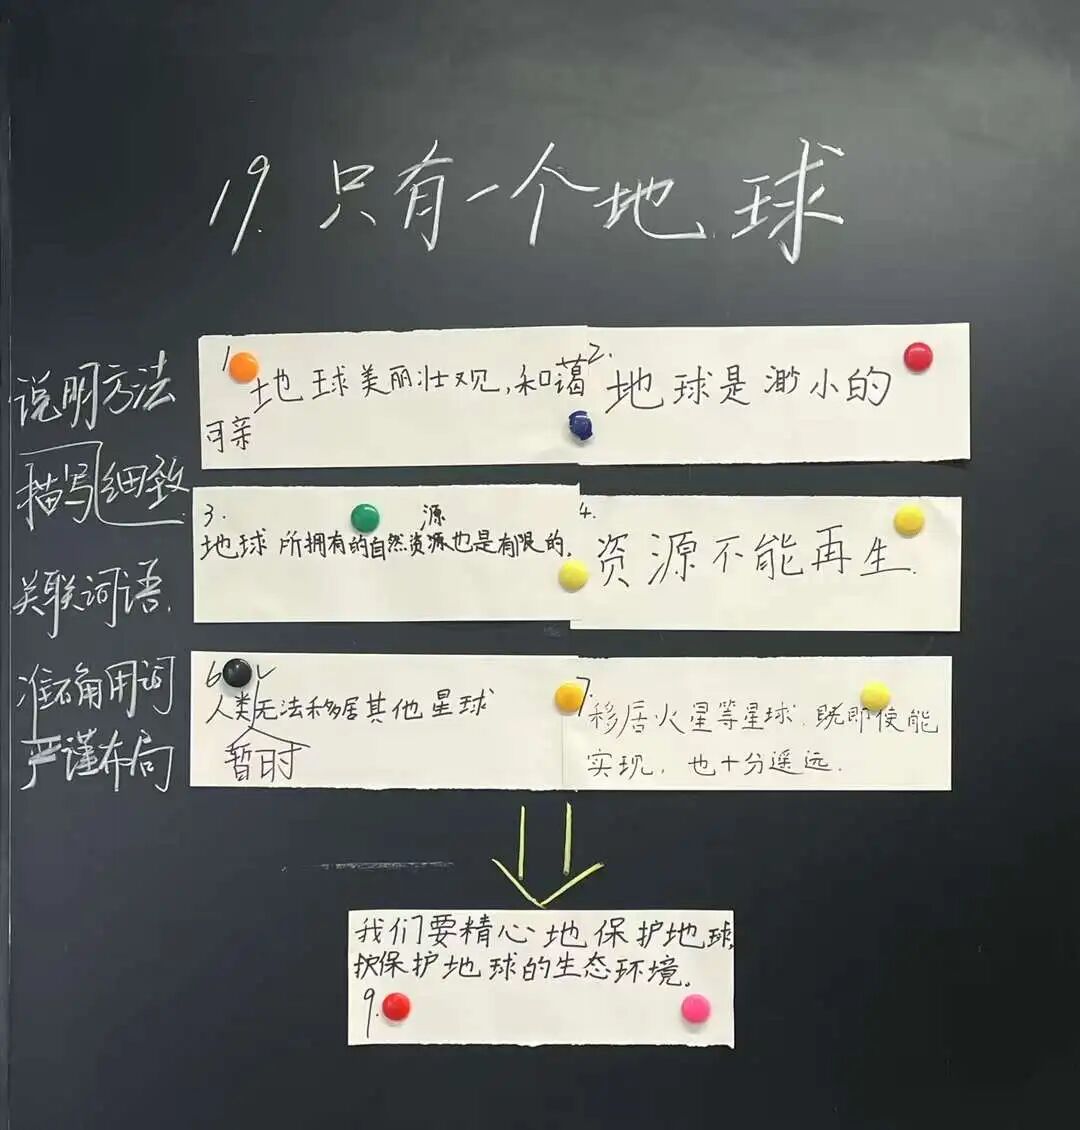 19. 只有一个地球
说明方法
描写细致
关联词语
准确用词
严谨布局
1
地球美丽壮观,和蔼
可亲
2.
地球是渺小的
3.
源
地球所拥有的自然资源也是有限的.
4.
资源不能再生.
6
人类无法移居其他星球
暂时
7.
移居火星等星球.既即使能
实现,也十分遥远.
我们要精心地保护地球,
保护地球的生态环境。
9.